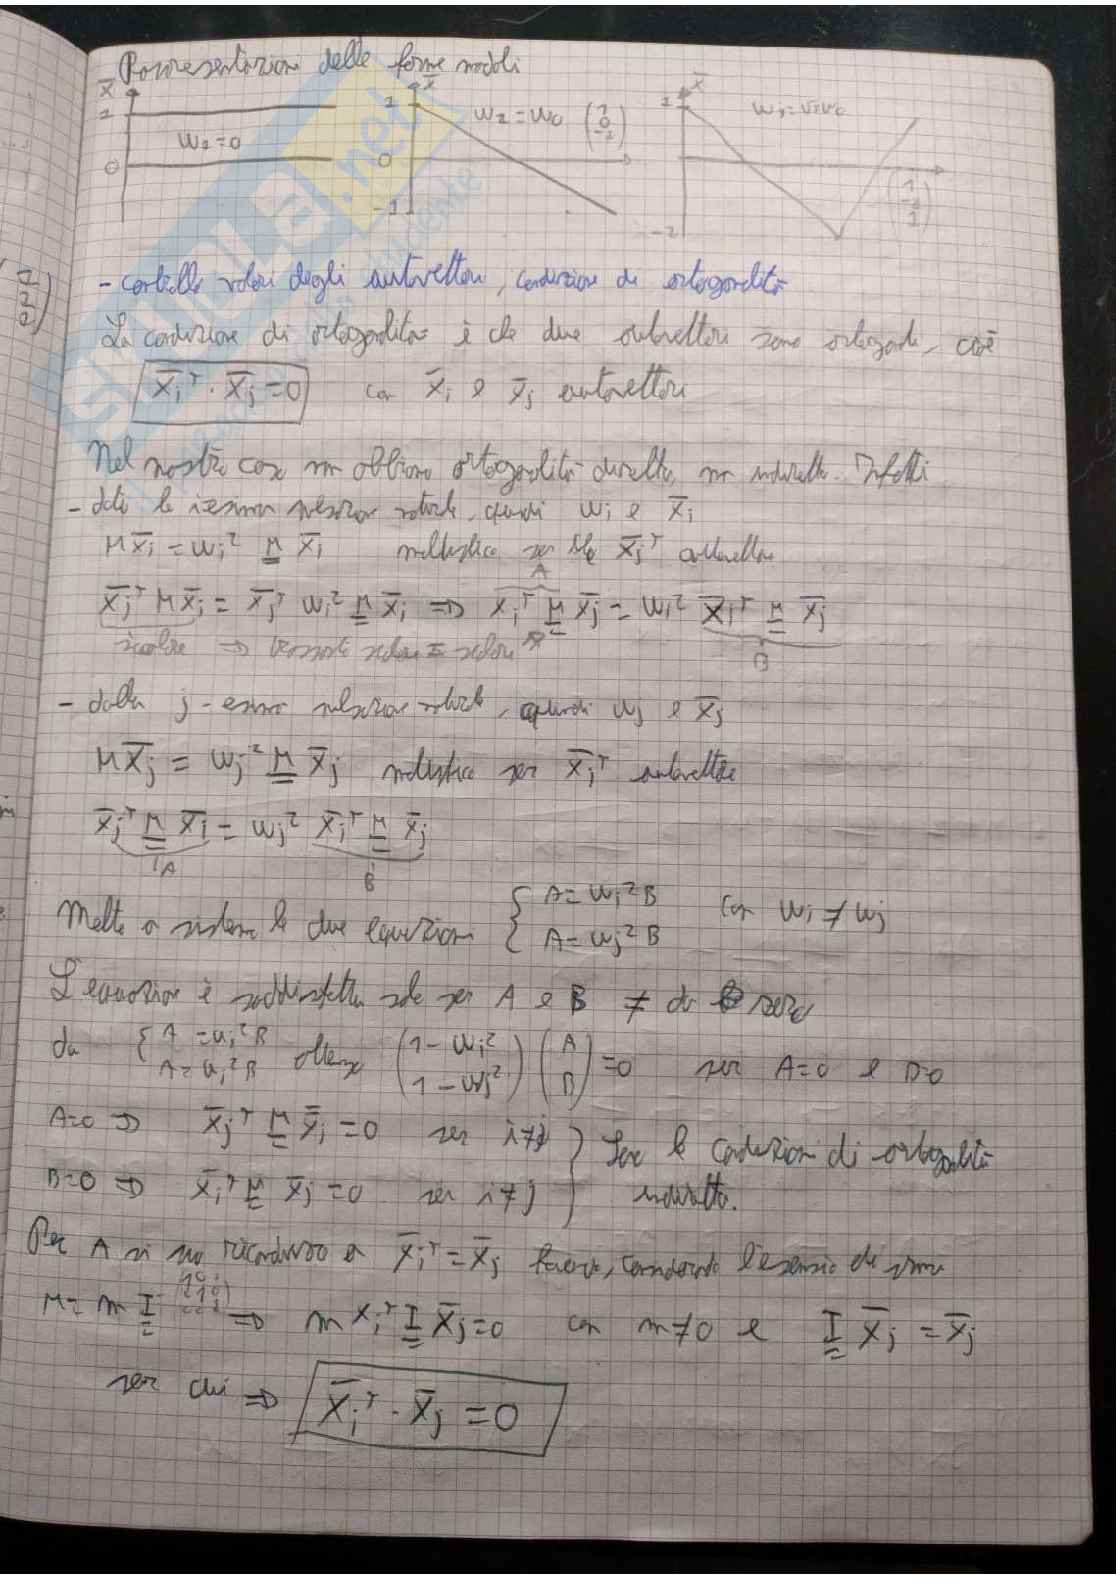 Rappresentazione delle forme modali
X̄ X̄ X̄
1 1 1
W₁=0 W₂=W₀ (1 0 -1) W₃=√3W₀
0 0 (1 -2 1)
-1 -2
- controllo valori degli autovettori, condizione di ortogonalità
La condizione di ortogonalità è che due autovettori sono ortogonali, cioè
X̄ᵢᵀ · X̄ⱼ = 0 con X̄ᵢ e X̄ⱼ autovettori
Nel nostro caso non abbiamo ortogonalità diretta, ma indiretta. Infatti
- data la iesima relazione, quindi Wᵢ e X̄ᵢ
M X̄ᵢ = Wᵢ² M X̄ᵢ moltiplico per X̄ⱼᵀ autovettore
A
X̄ⱼᵀ M X̄ᵢ = X̄ⱼᵀ Wᵢ² M X̄ᵢ => X̄ᵢᵀ M X̄ⱼ = Wᵢ² X̄ᵢᵀ M X̄ⱼ
scalare => scalare = scalareᵀ B
- dalla j-esima relazione, quindi Wⱼ e X̄ⱼ
M X̄ⱼ = Wⱼ² M X̄ⱼ moltiplico per X̄ᵢᵀ autovettore
X̄ⱼᵀ M X̄ᵢ = Wⱼ² X̄ᵢᵀ M X̄ⱼ
A B
Metto a sistema le due equazioni { A = Wᵢ² B con Wᵢ ≠ Wⱼ
A = Wⱼ² B
L'equazione è soddisfatta solo per A e B ≠ da zero
da { A = Wᵢ² B A = Wᵢ² B ottengo (1 - Wᵢ² 1 - Wⱼ²) (A B) = 0 per A=0 e B=0
A=0 => X̄ⱼᵀ M X̄ᵢ = 0 per i≠j } Sono le condizioni di ortogonalità
B=0 => X̄ᵢᵀ M X̄ⱼ = 0 per i≠j indiretta.
Per A si può ricondurre a X̄ᵢᵀ = X̄ⱼ considerando l'esempio di prima
M = m I => m Xᵢᵀ I X̄ⱼ = 0 con m≠0 e I X̄ⱼ = X̄ⱼ
per cui => X̄ᵢᵀ · X̄ⱼ = 0
SKUOLA.net